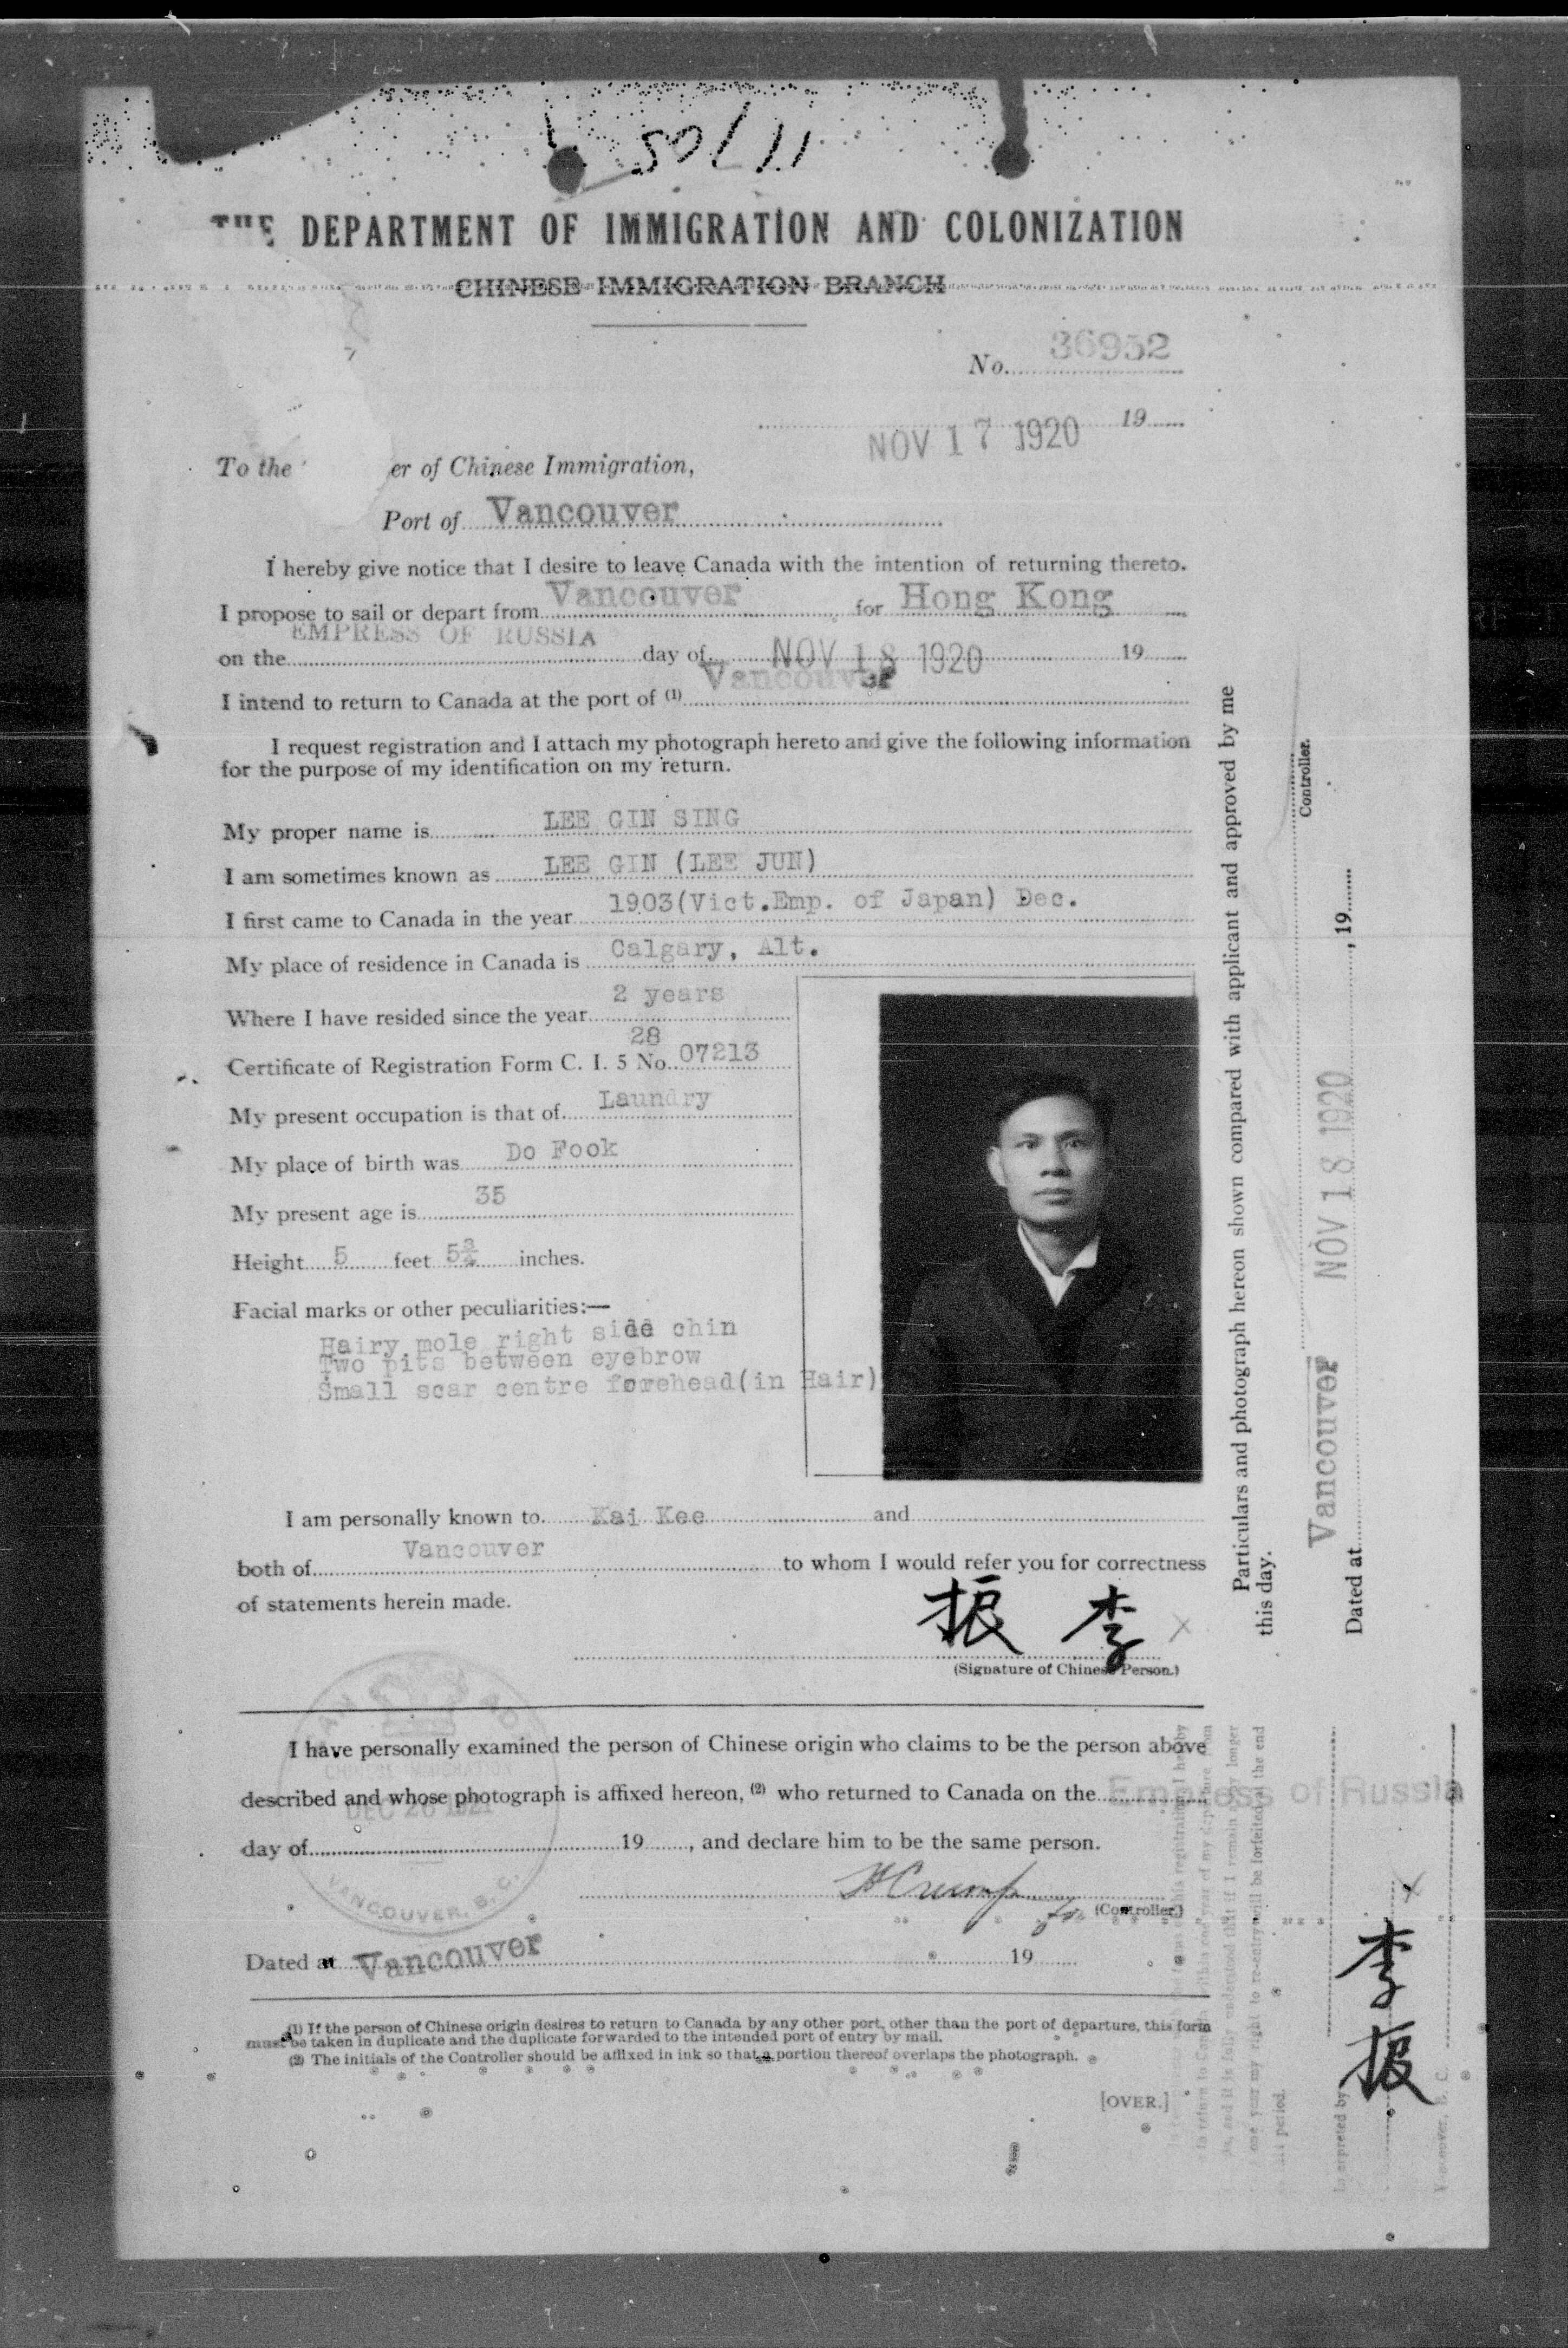 50/11
THE DEPARTMENT OF IMMIGRATION AND COLONIZATION
CHINESE IMMIGRATION BRANCH
No. 36952
NOV 17 1920 19
To the er of Chinese Immigration,
Port of Vancouver
I hereby give notice that I desire to leave Canada with the intention of returning thereto.
I propose to sail or depart from Vancouver for Hong Kong
on the EMPRESS OF RUSSIA day of NOV 18 1920 19
I intend to return to Canada at the port of (1) Vancouver
I request registration and I attach my photograph hereto and give the following information
for the purpose of my identification on my return.
My proper name is LEE GIN SING
I am sometimes known as LEE GIN (LEE JUN)
I first came to Canada in the year 1903(Vict.Emp. of Japan) Dec.
My place of residence in Canada is Calgary, Alt.
Where I have resided since the year 2 years
28
Certificate of Registration Form C. I. 5 No. 07213
My present occupation is that of Laundry
My place of birth was Do Fook
My present age is 35
Height 5 feet 5¾ inches.
Facial marks or other peculiarities:—
Hairy mole right side chin
Two pits between eyebrow
Small scar centre forehead(in Hair)
I am personally known to Kai Kee and
both of Vancouver to whom I would refer you for correctness
of statements herein made.
振 李 X
(Signature of Chinese Person.)
I have personally examined the person of Chinese origin who claims to be the person above
described and whose photograph is affixed hereon, (2) who returned to Canada on the Empress of Russia
day of 19 , and declare him to be the same person.
(Controller.)
Dated at Vancouver 19
VANCOUVER, B. C.
(1) If the person of Chinese origin desires to return to Canada by any other port, other than the port of departure, this form
must be taken in duplicate and the duplicate forwarded to the intended port of entry by mail.
(2) The initials of the Controller should be affixed in ink so that a portion thereof overlaps the photograph.
[OVER.]
Particulars and photograph hereon shown compared with applicant and approved by me
this day.
Controller.
Dated at Vancouver NOV 18 1920 , 19
X
李
振